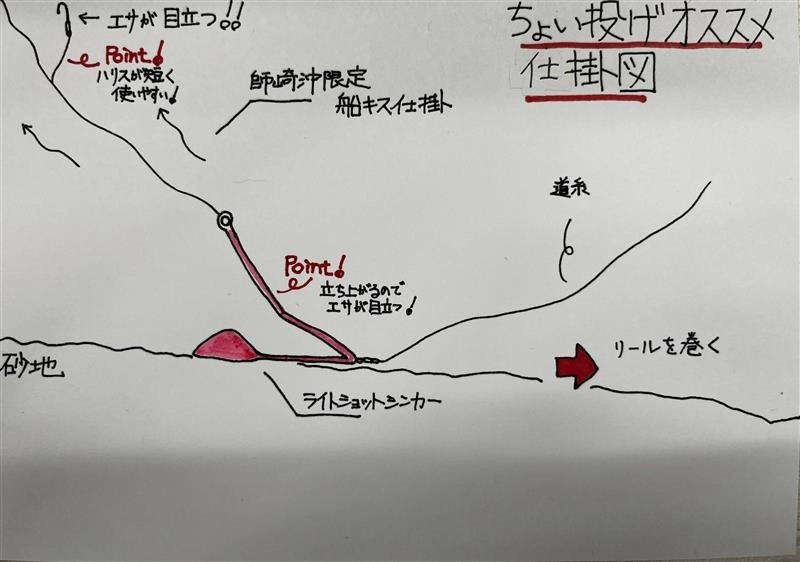 ちょい投げオススメ
仕掛図
← エサが目立つ!!
Point!
ハリスが短く
使いやすい!
師崎沖限定
船キス仕掛
道糸
Point!
立ち上がるので
エサが目立つ!
リールを巻く
砂地
ライトショットシンカー